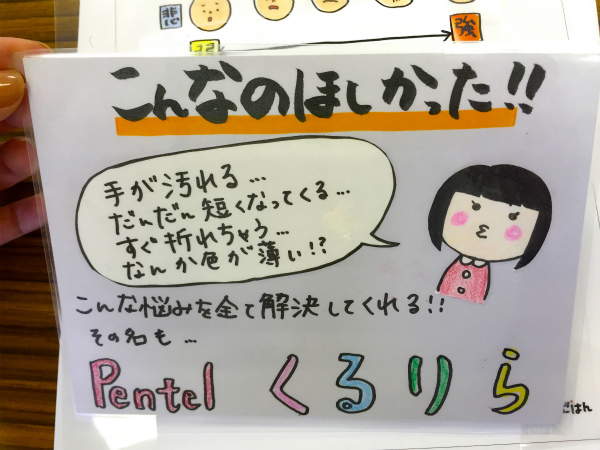 悲
弱
強
こんなのほしかった!!
手が汚れる…
だんだん短くなってくる…
すぐ折れちゃう…
なんか色が薄い!?
こんな悩みを全て解決してくれる!!
その名も…
Pentel くるりら
ごはん